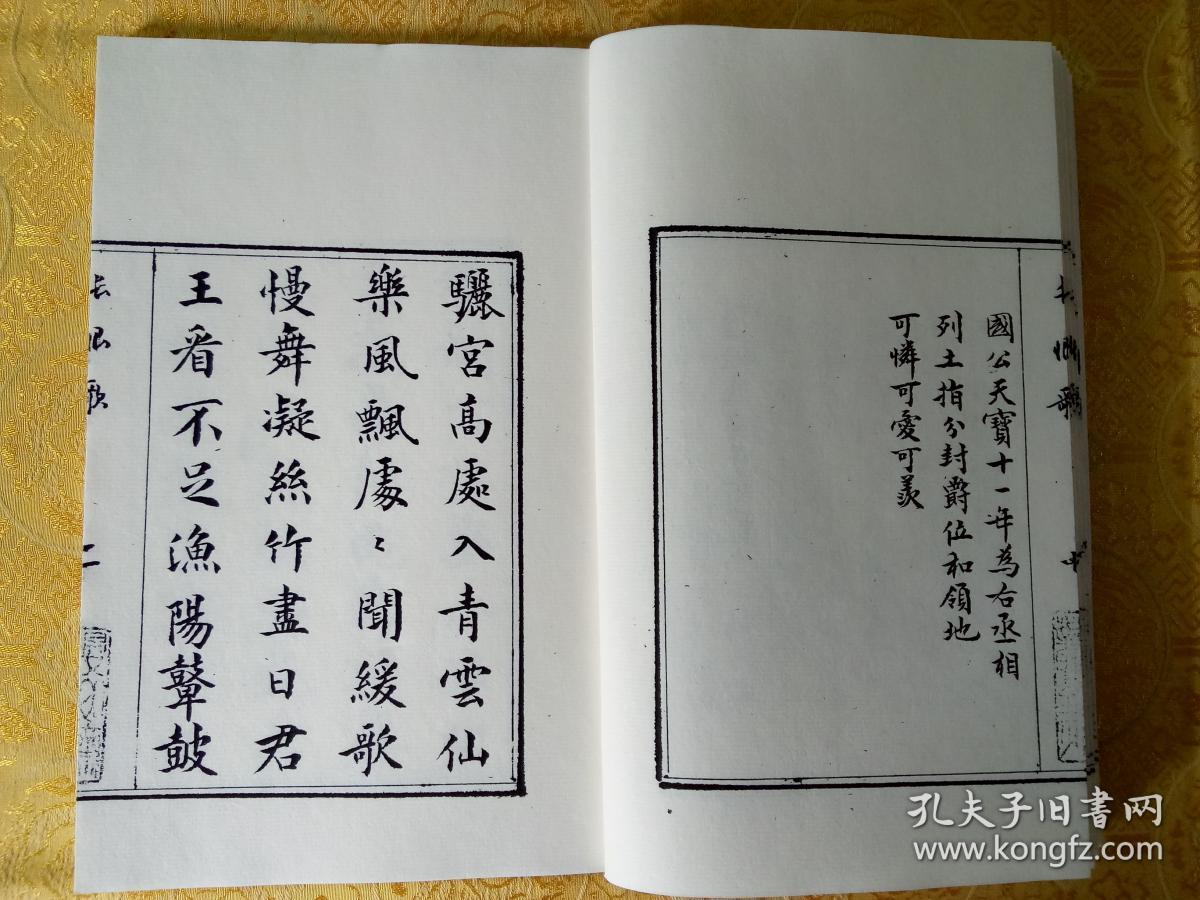 國公天寶十一年為右丞相
列土指分封爵位和領地
可憐可愛可羨
驪宮高處入青雲仙
樂風飄處〻聞緩歌
慢舞凝絲竹盡日君
王看不足漁陽鼙鼓
長恨歌
二
孔夫子旧书网
www.kongfz.com